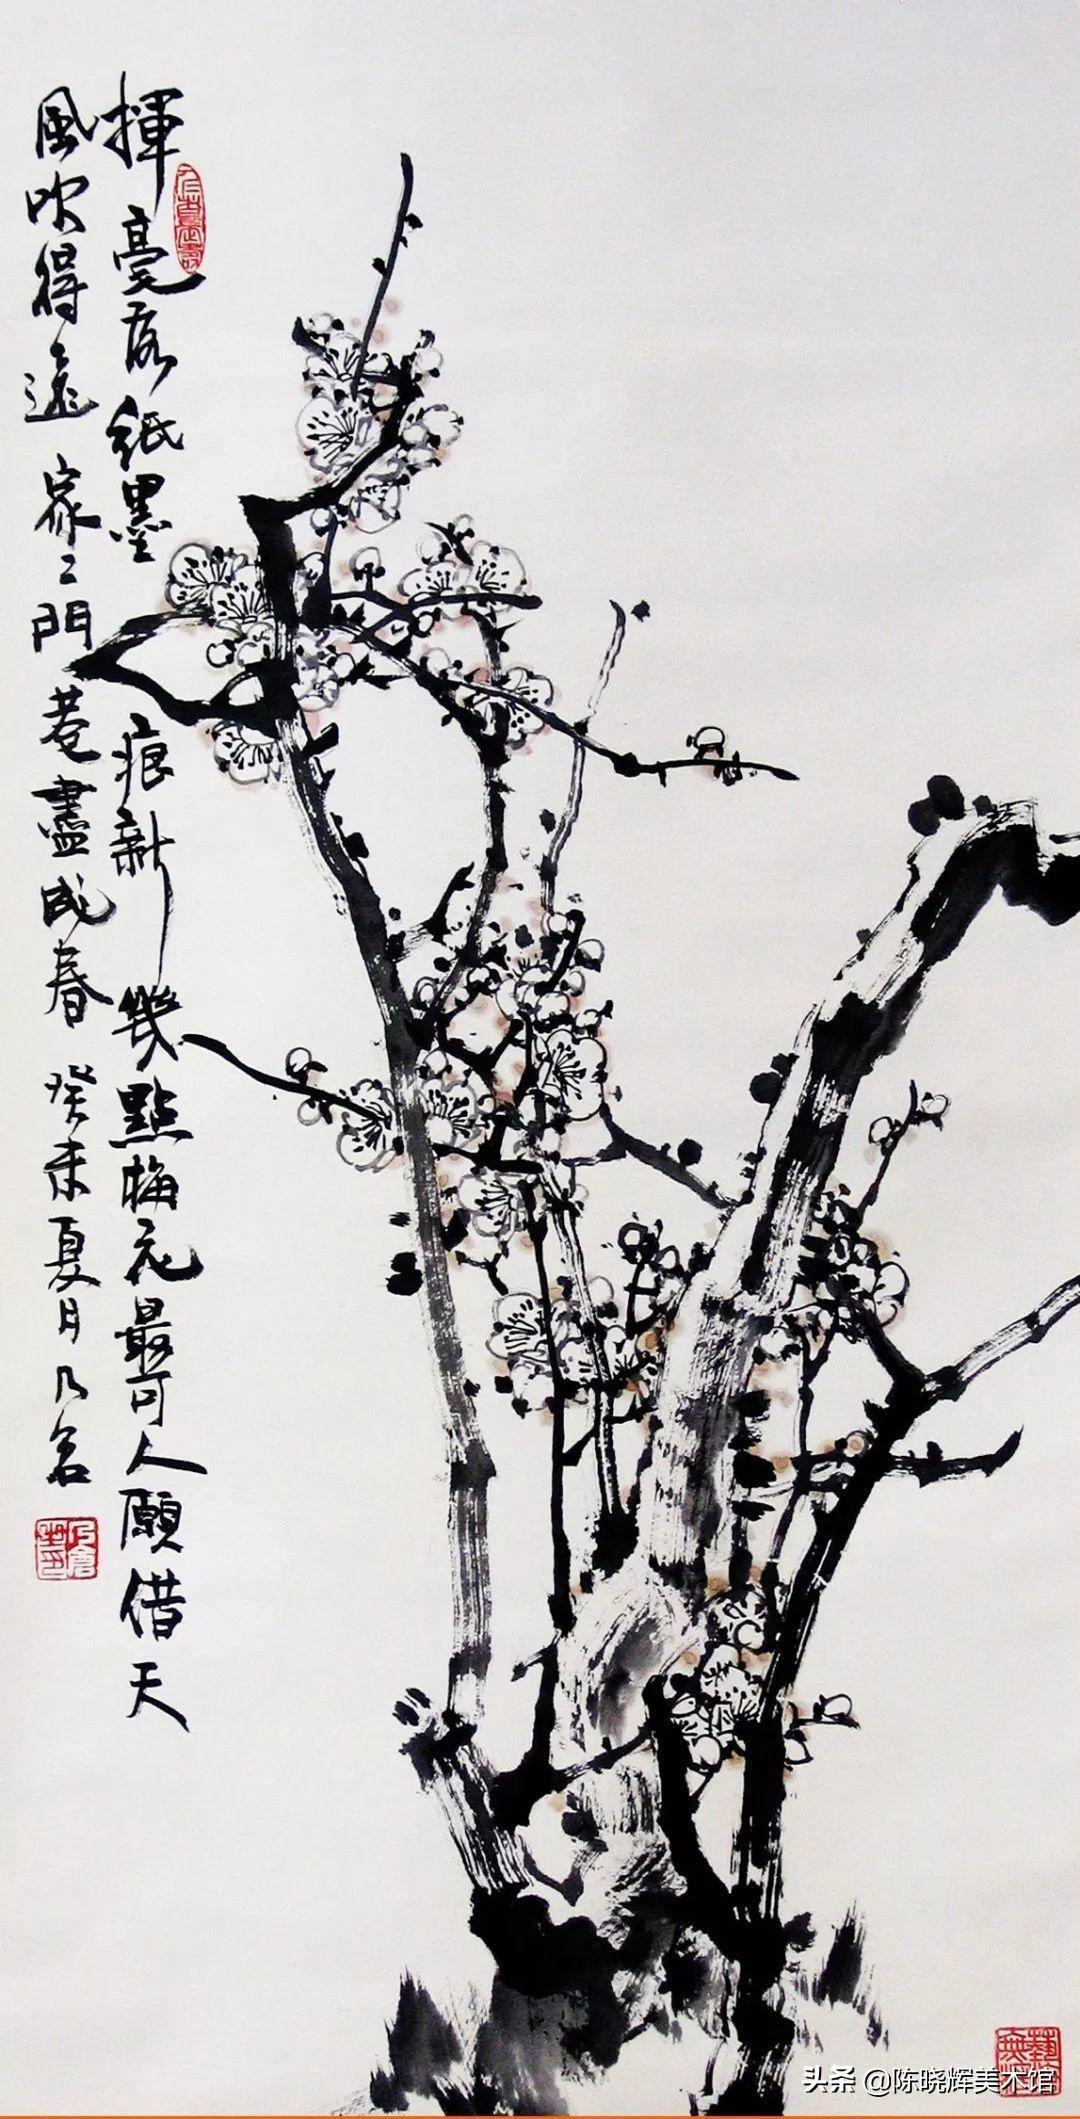 揮毫落紙墨痕新幾點梅花最可人願借天
風吹得遠家〻門巷盡成春癸未夏月乃
头条 @陈晓辉美术馆